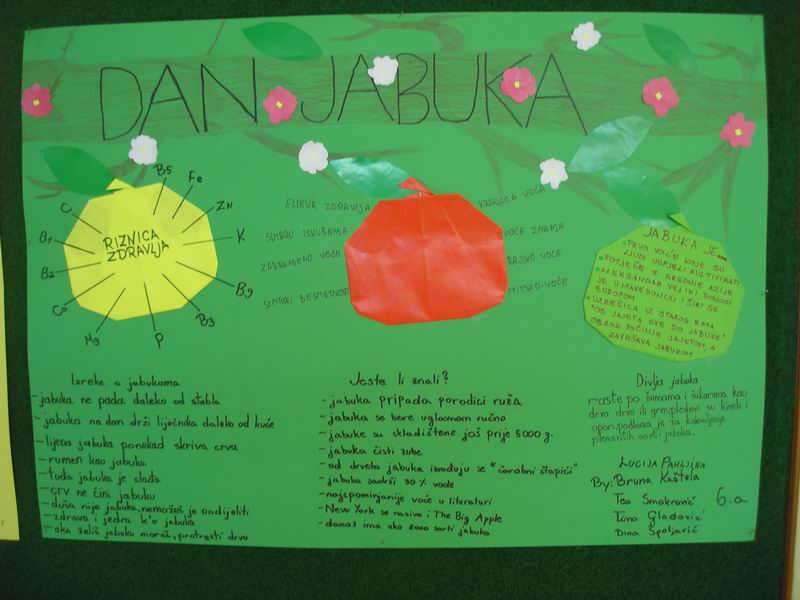 DAN JABUKA
RIZNICA
ZDRAVLJA
B5
Fe
ZN
K
B9
B3
P
Mg
B2
B1
C
ELIKSIR ZDRAVLJA
SIMBOL ISKUŠENJA
ZABRANJENO VOĆE
SIMBOL BESMRTNOSTI
KRALJICA VOĆA
VOĆE ZNANJA
RAJSKO VOĆE
MITSKO VOĆE
JABUKA JE...
PRVO VOĆE KOJE SU
LJUDI USPJELI KULTIVIRATI
POTJEČE IZ SREDNJE AZIJE
ALEKSANDAR VELIKI DONOSI
JE U MAKEDONIJU I ŠIRI SE
EUROPOM
UZREČICA IZ STAROG RIMA
"OD JAJETA SVE DO JABUKE"
OBROK POČINJE JAJETOM, A
ZAVRŠAVA JABUKOM
Izreke o jabukama
- jabuka ne pada daleko od stabla
- jabuka na dan drži liječnika daleko od kuće
- lijepa jabuka ponekad skriva crva
- rumen kao jabuka
- tuđa jabuka je slađa
- crv ne čini jabuku
- duša nije jabuka, nemožeš je podijeliti
- zdrava i jedra k'o jabuka
- ako želiš jabuku moraš, protresti drvo
Jeste li znali?
- jabuka pripada porodici ruža
- jabuka se bere uglavnom ručno
- jabuke su skladištene još prije 5000 g.
- jabuka čisti zube
- od drveta jabuke izrađuju se "čarobni štapići"
- jabuka sadrži 90 % vode
- najspominjanije voće u literaturi
- New York se naziva i The Big Apple
- danas ima oko 2000 sorti jabuka
Divlja jabuka
raste po šumama i šikarama kao
drvo drvo ili grm, plodovi su kiseli i
opori, podloga je za kalemljenje
plemenitih sorti jabuka.
LUCIJA
By: Bruna Kaštela
Tea Smokrović 6.a
Tina Gladović
Dina Špoljarić